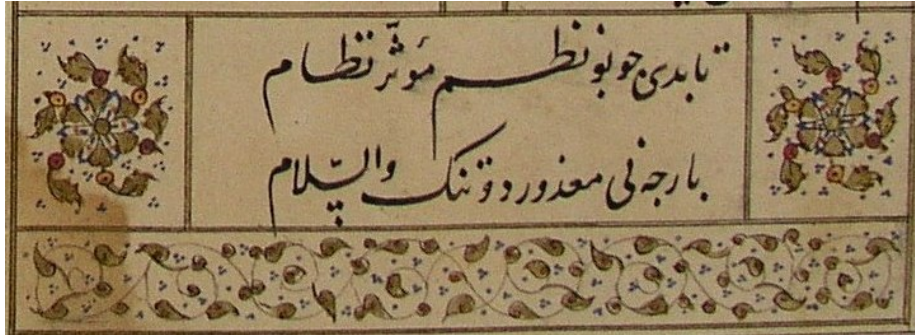 تابدی جو بو نظم مؤثّر نظام
بارجه نی معذور دوتنک والسّلام